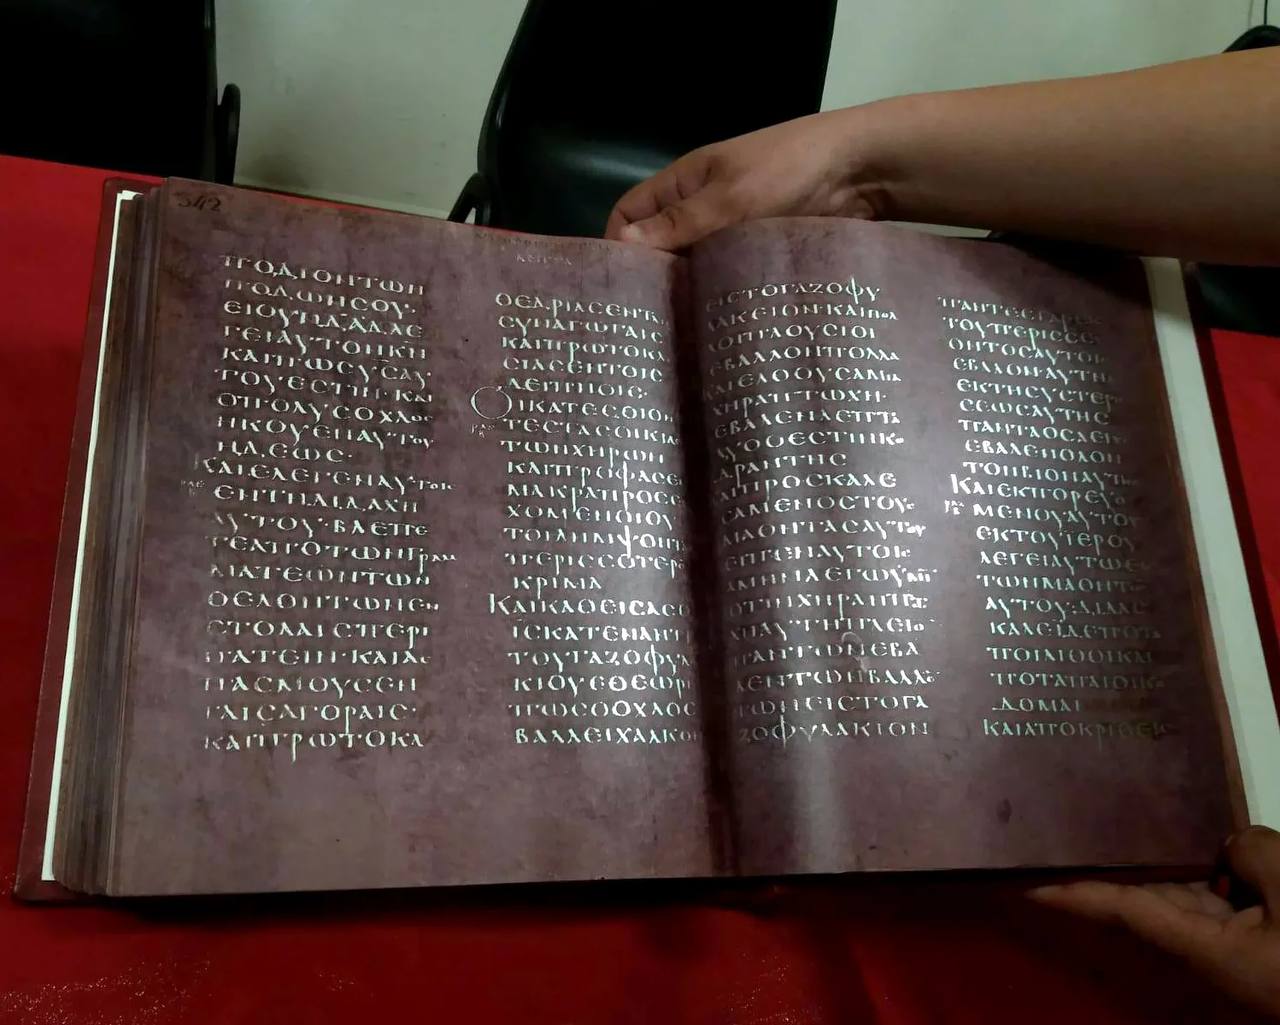 342
ΠΟΔΙΟΝΤΩΝ
ΠΟΔΩΝϹΟΥ·
ΕΙΟΥΝΔΑΔΛΕ
ΓΕΙΑΥΤΟΝΚΝ
ΚΑΙΠΩϹΥϹΑΥ
ΤΟΥΕϹΤΙΝ·ΚΑΙ
ΟΠΟΛΥϹΟΧΛΟϹ
ΗΚΟΥΕΝΑΥΤΟΥ
ΗΔΕΩϹ·
ΚΑΙΕΛΕΓΕΝΑΥΤΟΙϹ
ΕΝΤΗΔΙΔΑΧΗ
ΑΥΤΟΥ·ΒΛΕΠΕ
ΤΕΑΠΟΤΩΝΓΡΑΜ
ΜΑΤΕΩΝΤΩΝ
ΘΕΛΟΝΤΩΝΕΝ
ϹΤΟΛΑΙϹΠΕΡΙ
ΠΑΤΕΙΝ·ΚΑΙΑϹ
ΠΑϹΜΟΥϹΕΝ
ΤΑΙϹΑΓΟΡΑΙϹ·
ΚΑΙΠΡΩΤΟΚΑ
ΘΕΔΡΙΑϹΕΝΤΑΙϹ
ϹΥΝΑΓΩΓΑΙϹ
ΚΑΙΠΡΩΤΟΚΛΙ
ϹΙΑϹΕΝΤΟΙϹ
ΔΕΙΠΝΟΙϹ·
ΟΙΚΑΤΕϹΘΙΟΝ
ΤΕϹΤΑϹΟΙΚΙΑϹ
ΤΩΝΧΗΡΩΝ
ΚΑΙΠΡΟΦΑϹΕΙ
ΜΑΚΡΑΠΡΟϹΕΥ
ΧΟΜΕΝΟΙΟΥ
ΤΟΙΛΗΜΨΟΝΤΑΙ
ΠΕΡΙϹϹΟΤΕΡΟΝ
ΚΡΙΜΑ
ΚΑΙΚΑΘΕΙϹΑϹΟ
ΙϹΚΑΤΕΝΑΝΤΙ
ΤΟΥΓΑΖΟΦΥΛΑ
ΚΙΟΥΕΘΕΩΡΕΙ
ΠΩϹΟΟΧΛΟϹ
ΒΑΛΛΕΙΧΑΛΚΟΝ
ΕΙϹΤΟΓΑΖΟΦΥ
ΛΑΚΕΙΟΝ·ΚΑΙΠΟΛ
ΛΟΙΠΛΟΥϹΙΟΙ
ΕΒΑΛΛΟΝΠΟΛΛΑ
ΚΑΙΕΛΘΟΥϹΑΜΙΑ
ΧΗΡΑΠΤΩΧΗ·
ΕΒΑΛΕΝΛΕΠΤΑ
ΔΥΟΟΕϹΤΙΝΚΟ
ΔΡΑΝΤΗϹ
ΚΑΙΠΡΟϹΚΑΛΕ
ϹΑΜΕΝΟϹΤΟΥϹ
ΜΑΘΗΤΑϹΑΥΤΟΥ
ΕΙΠΕΝΑΥΤΟΙϹ
ΑΜΗΝΛΕΓΩΥΜΙΝ
ΟΤΙΗΧΗΡΑΗΠΤΩ
ΧΗΑΥΤΗΠΛΕΙΟΝ
ΠΑΝΤΩΝΕΒΑ
ΛΕΝΤΩΝΒΑΛΛΟΝ
ΤΩΝΕΙϹΤΟΓΑ
ΖΟΦΥΛΑΚΙΟΝ
ΠΑΝΤΕϹΓΑΡΕΚ
ΤΟΥΠΕΡΙϹϹΕΥ
ΟΝΤΟϹΑΥΤΟΙϹ
ΕΒΑΛΟΝ·ΑΥΤΗ
ΕΚΤΗϹΥϹΤΕΡΗ
ϹΕΩϹΑΥΤΗϹ
ΠΑΝΤΑΟϹΑΕΙΧΕΝ
ΕΒΑΛΕΝΟΛΟΝ
ΤΟΝΒΙΟΝΑΥΤΗϹ
ΚΑΙΕΚΠΟΡΕΥΟ
ΜΕΝΟΥΑΥΤΟΥ
ΕΚΤΟΥΙΕΡΟΥ
ΛΕΓΕΙΑΥΤΩΕΙϹ
ΤΩΝΜΑΘΗΤΩΝ
ΑΥΤΟΥ·ΔΙΔΑϹ
ΚΑΛΕΙΔΕΠΟΤΑ
ΠΟΙΛΙΘΟΙΚΑΙ
ΠΟΤΑΠΑΙΟΙΚΟ
ΔΟΜΑΙ
ΚΑΙΑΠΟΚΡΙΘΕΙϹ